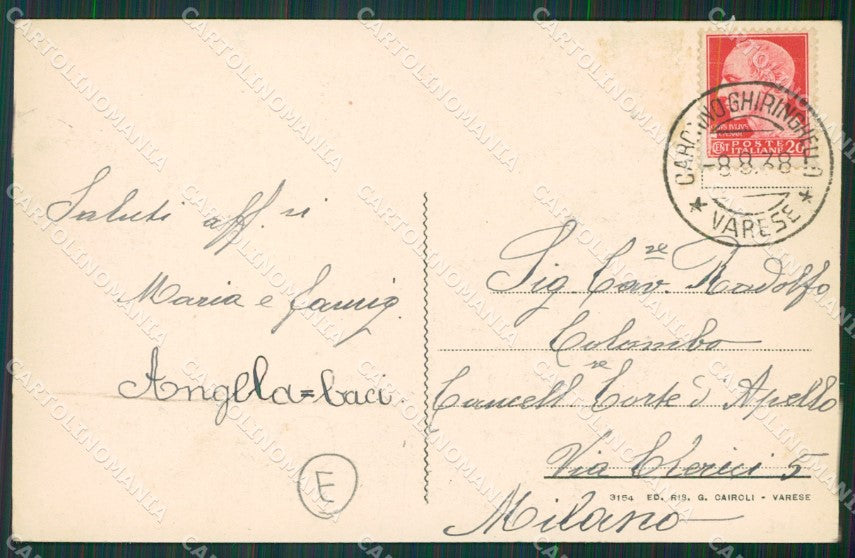 Saluti aff.si
Maria e famig.
Angela=baci.
E
POSTE
CENT ITALIANE 20
GHIRINGHELLO
8.8.38
* VARESE *
Sig. Cav.re Rodolfo
Colombo
Cancell.re Corte d'Apello
Via Clerici 5
Milano
3154 ED. RIS. G. CAIROLI - VARESE
CARTOLINOMANIA